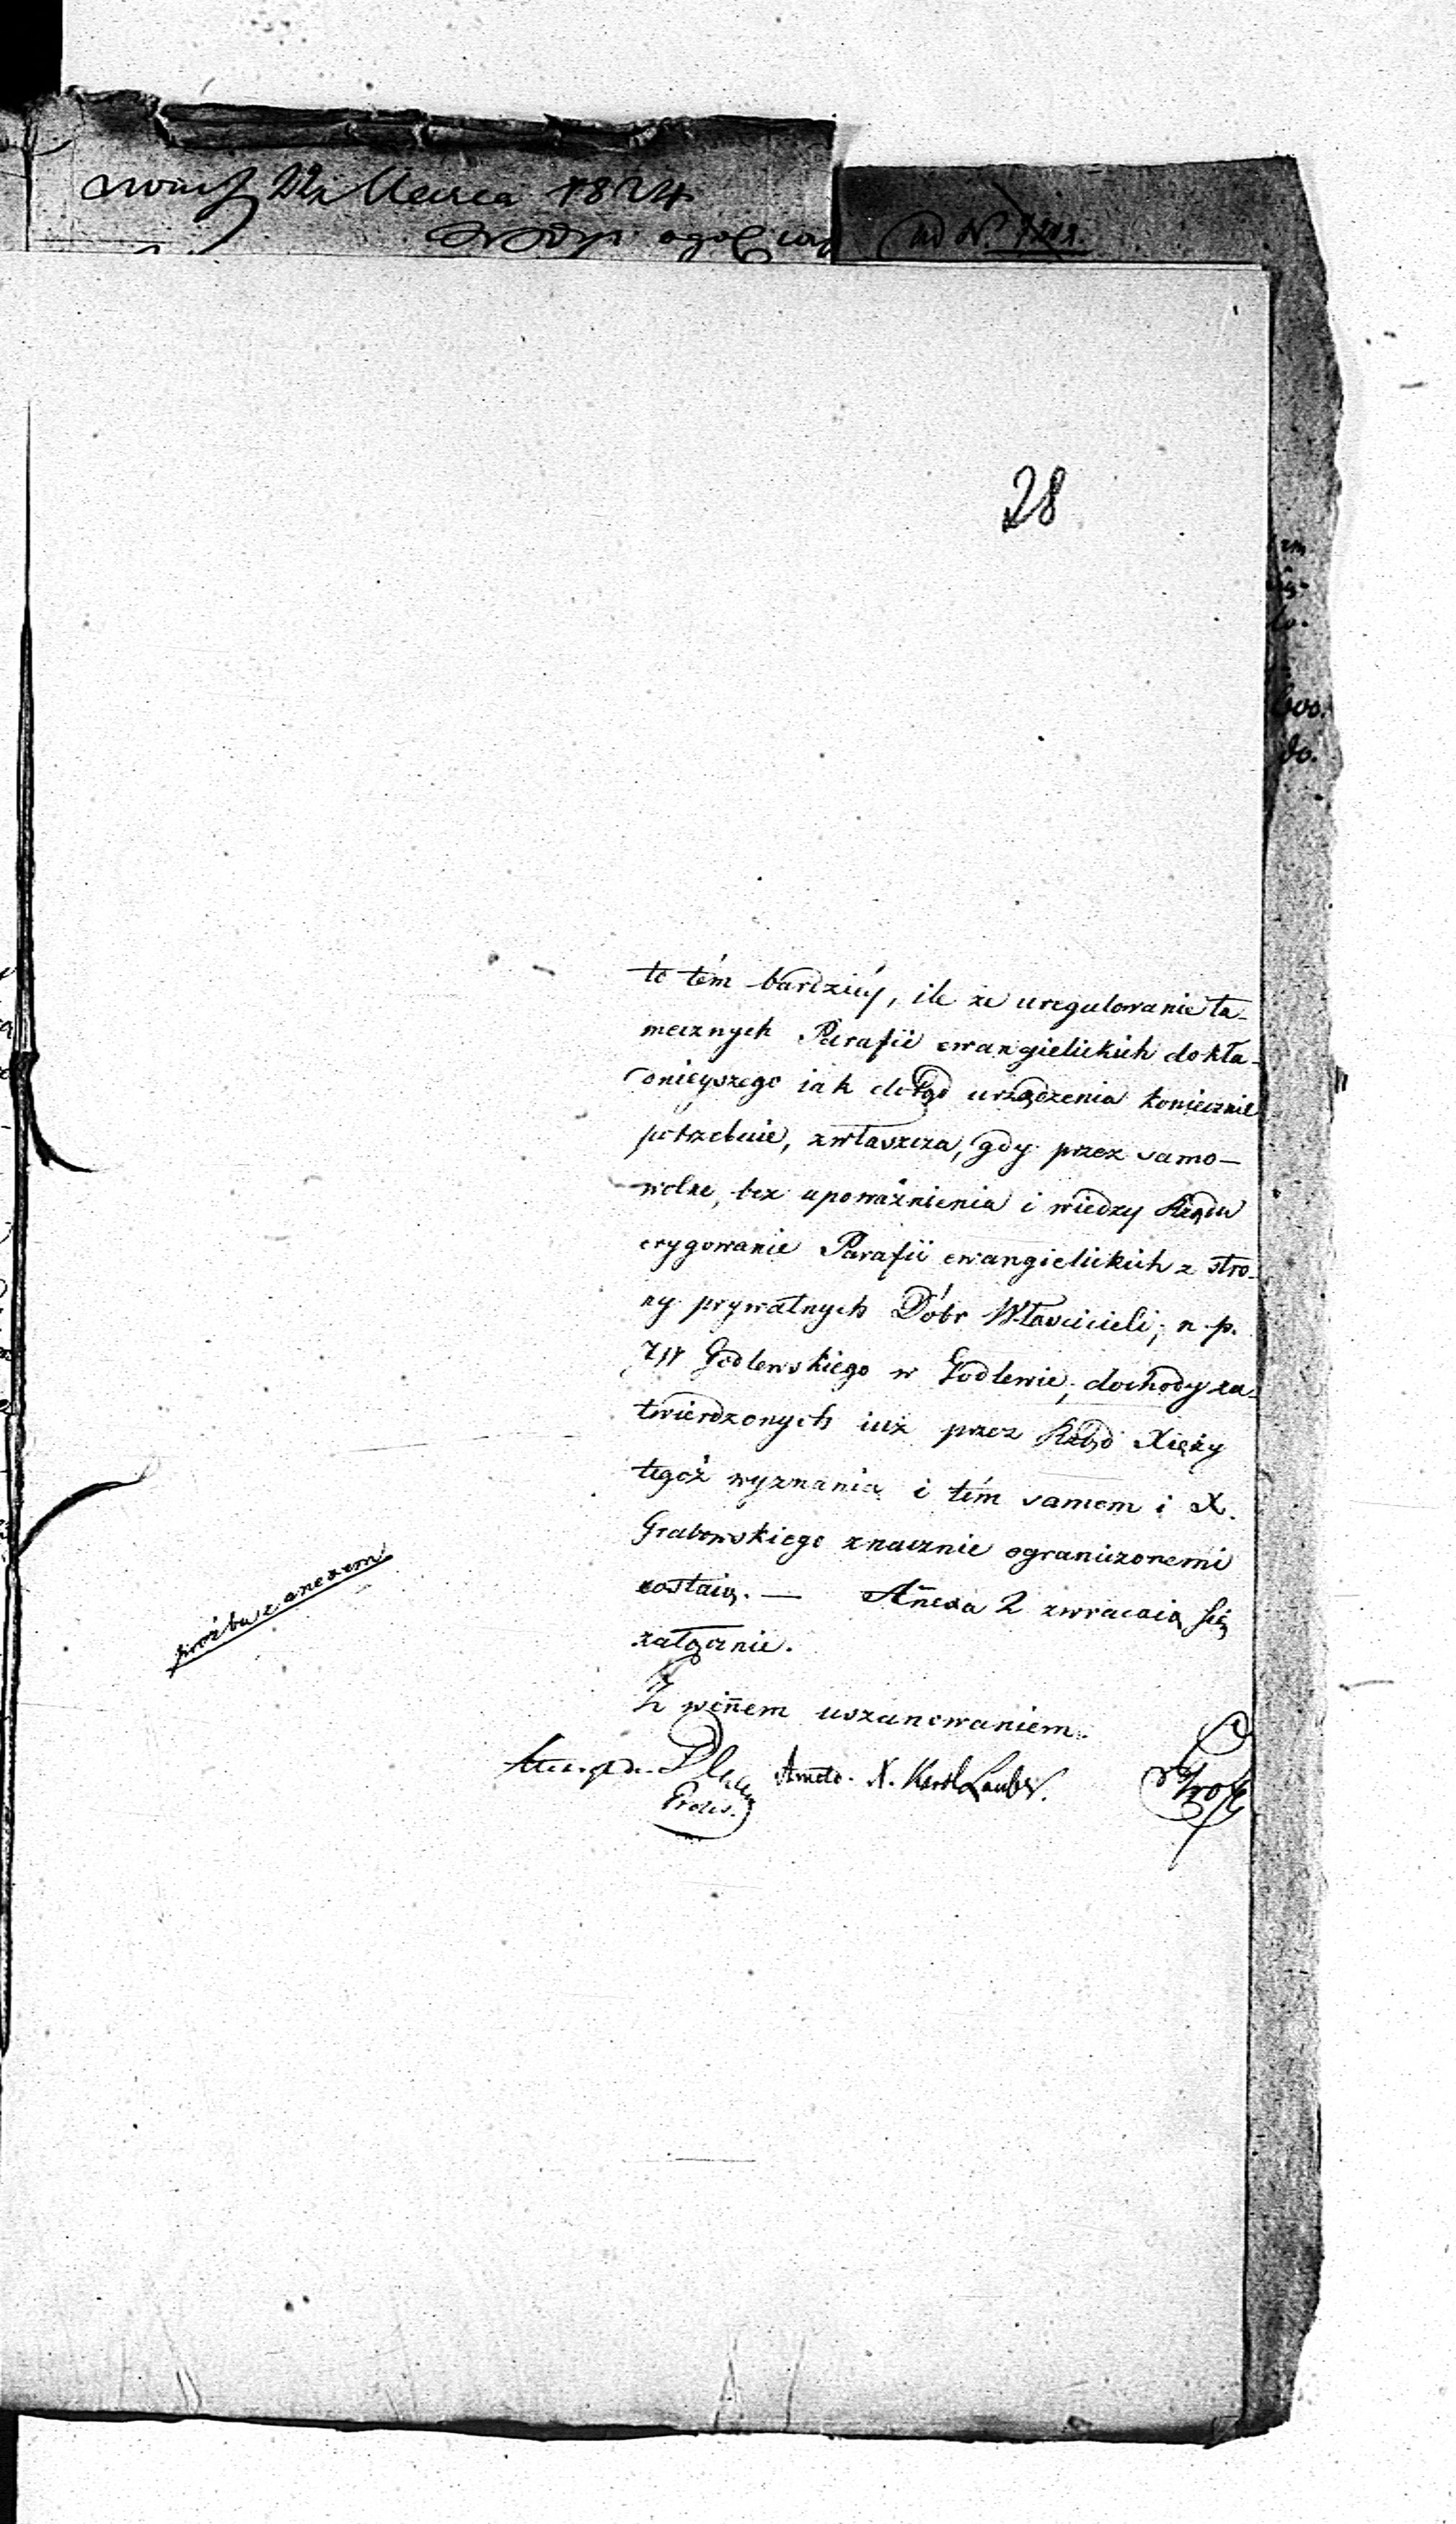 Marca 1824
ad N.
28
to tém bardziéy, ile że uregulowanie ta-
mecznych Parafii ewangielickich dokła-
dnieyszego iak dotąd urządzenia koniecznie
potrzebuie, zwłaszcza, gdy przez samo-
wolne, bez upoważnienia i wiedzy Rządu
erygowanie Parafii ewangielickich z stro-
ny prywatnych Dóbr Właścicieli; n. p.
Godlewskiego w Godlewie; dochody za-
twierdzonych iuż przez Rząd Xięży
tegoż wyznania i tém samem i X.
Grabowskiego znacznie ograniczonemi
zostaią. — Añexa 2 zwracaią się
załącznie.
prożba z anexem
Z wiñem uszanowaniem.
X. Karol Lauber.
Prezes.